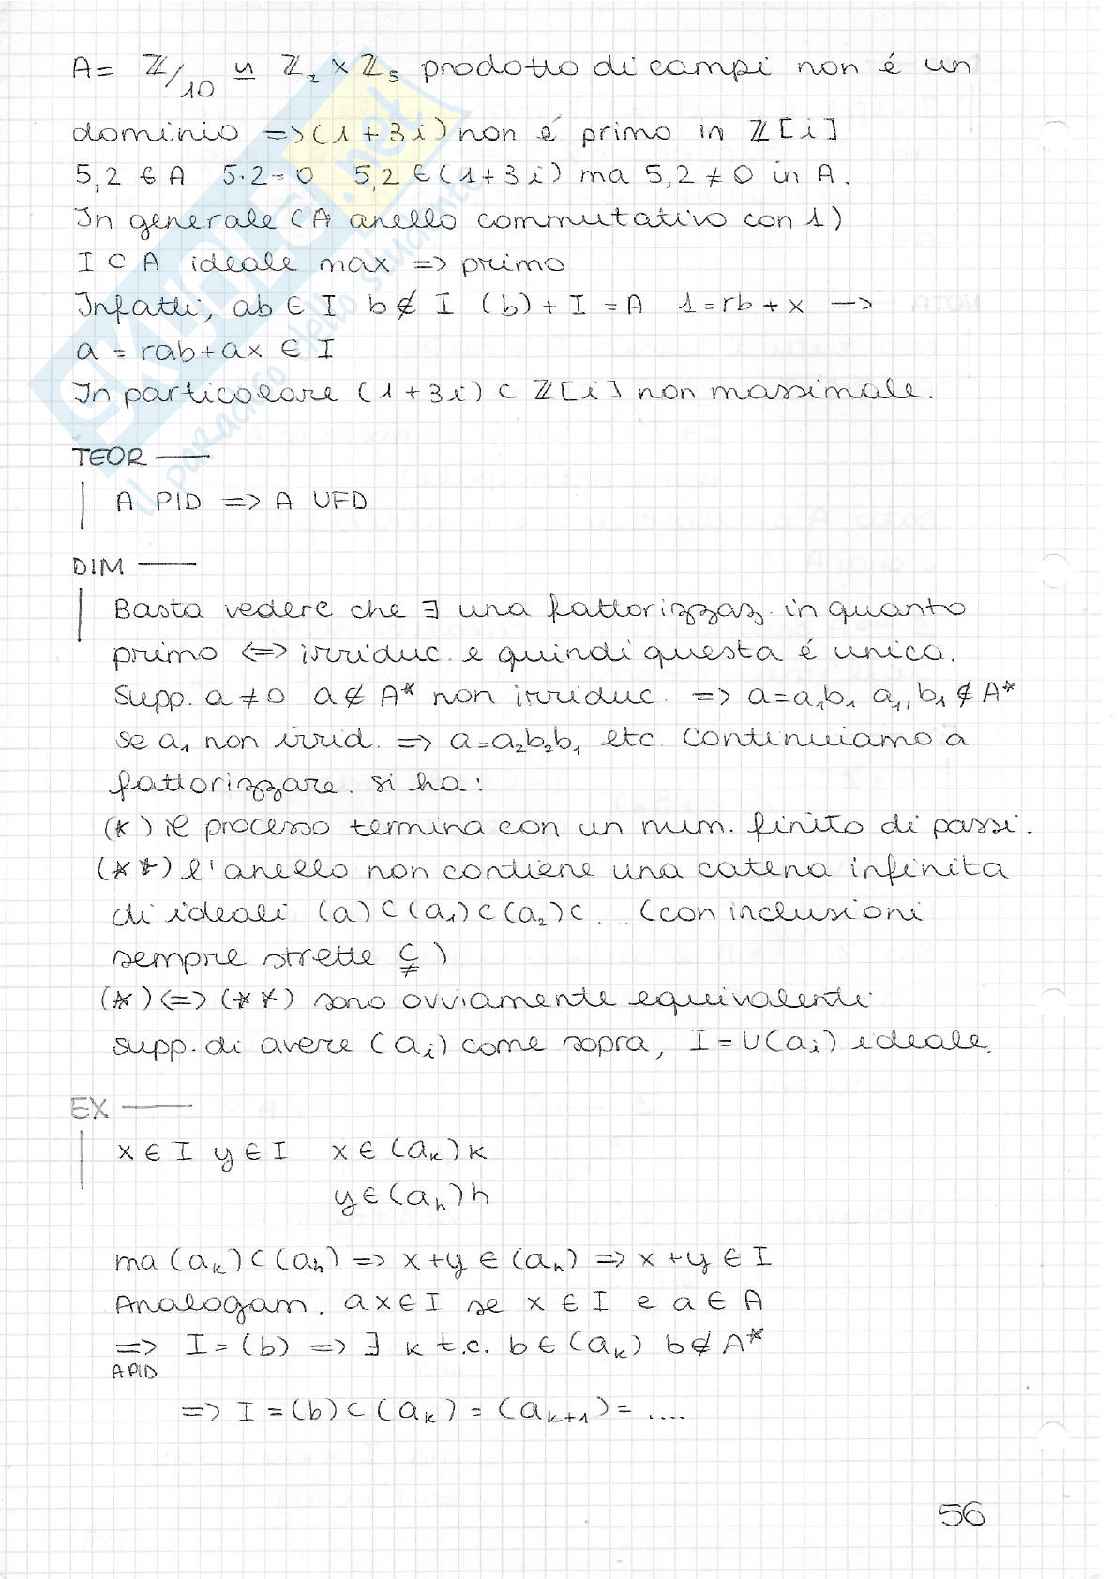 A = ℤ/10 ≃ ℤ₂ × ℤ₅ prodotto di campi non é un
dominio => (1+3i) non é primo in ℤ[i]
5,2 ∈ A 5·2=0 5,2 ∈ (1+3i) ma 5,2 ≠ 0 in A.
In generale (A anello commutativo con 1)
I ⊂ A ideale max => primo
Infatti, ab ∈ I b ∉ I (b) + I = A 1 = rb + x →
a = rab + ax ∈ I
In particolare (1+3i) ⊂ ℤ[i] non massimale.
TEOR —
A PID => A UFD
DIM —
Basta vedere che ∃ una fattorizzaz. in quanto
primo <=> irriduc. e quindi questa é unica.
Supp. a ≠ 0 a ∉ A* non irriduc. => a = a₁b₁ a₁, b₁ ∉ A*
se a₁ non irrid. => a = a₂b₂b₁ etc. Continuiamo a
fattorizzare. si ha:
(*) il processo termina con un num. finito di passi.
(**) l'anello non contiene una catena infinita
di ideali (a) ⊂ (a₁) ⊂ (a₂) ⊂ .. (con inclusioni
sempre strette ⊊)
(*) <=> (**) sono ovviamente equivalenti
supp. di avere (aᵢ) come sopra, I = ∪(aᵢ) ideale.
EX —
x ∈ I y ∈ I x ∈ (aₖ) k
y ∈ (aₕ) h
ma (aₖ) ⊂ (aₕ) => x+y ∈ (aₕ) => x+y ∈ I
Analogam. ax ∈ I se x ∈ I e a ∈ A
=> I = (b) => ∃ k t.c. b ∈ (aₖ) b ∉ A*
A PID
=> I = (b) ⊂ (aₖ) = (aₖ₊₁) = ....
56